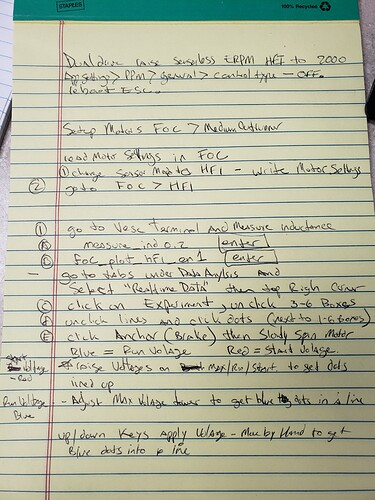 STAPLES
100% Recycled
Dual drive raise sensorless ERPM HFI to 2000
App settings > PPM > General > control type - OFF.
reboot ESC.
Setup Motors FOC > Medium Outrunner
read Motor Settings in FOC
① change Sensor Mode to HFI - write Motor Settings
② go to FOC > HFI
① go to Vesc Terminal And Measure inductance
Ⓐ measure_ind 0.2 enter
Ⓑ foc_plot_hfi_en 1 enter
- go to tabs under Data Anylsis and
Select "Realtime Data" then top Right Corner
Ⓒ click on Experiment, unclick 3-6 Boxes
Ⓓ unclick lines and click dots (next to 1-6 boxes)
Ⓔ click Anchor (Brake) then Slowly Spin Motor
Blue = Run Voltage Red = Start Voltage.
Start Voltage - Red
raise Voltages on Max/Run/Start to get dots
lined up
Run Voltage Blue
- Adjust Max Voltage lower to get blue dots in a line
up/down Keys Apply Voltage - Move by Hand to get
Blue dots into a line